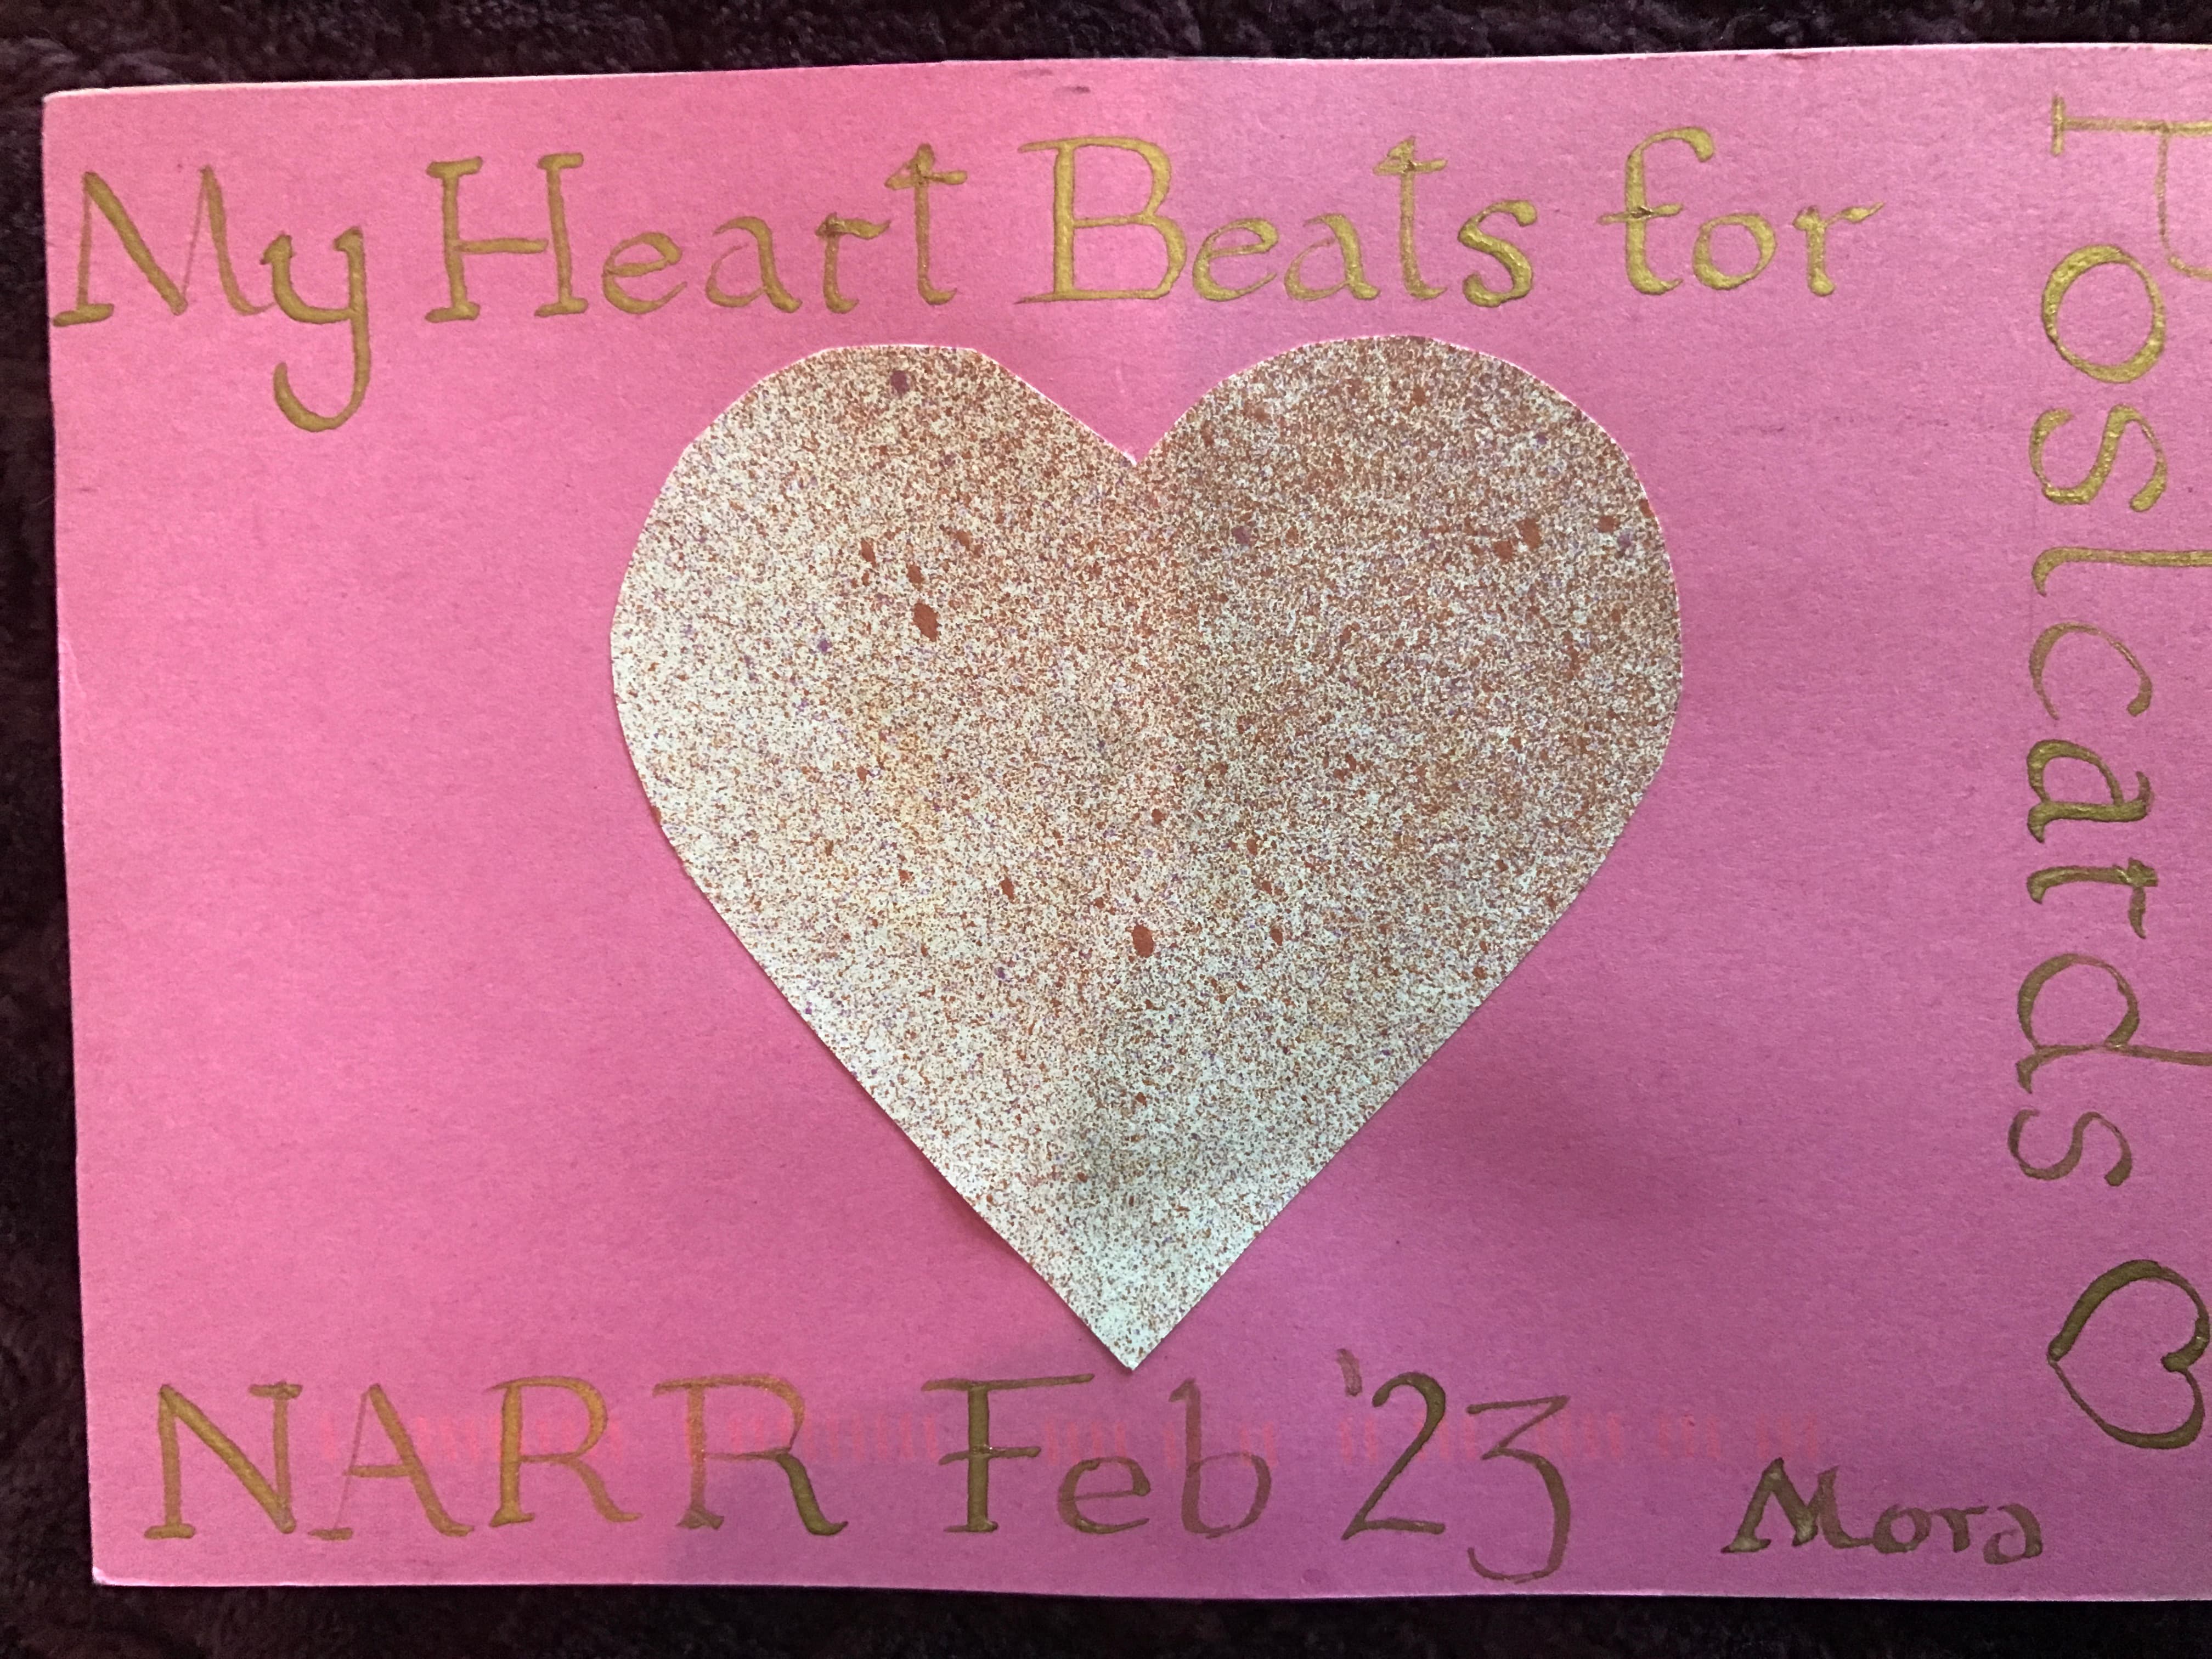 My Heart Beats for
Postcards ♡
NARR Feb '23
Mora